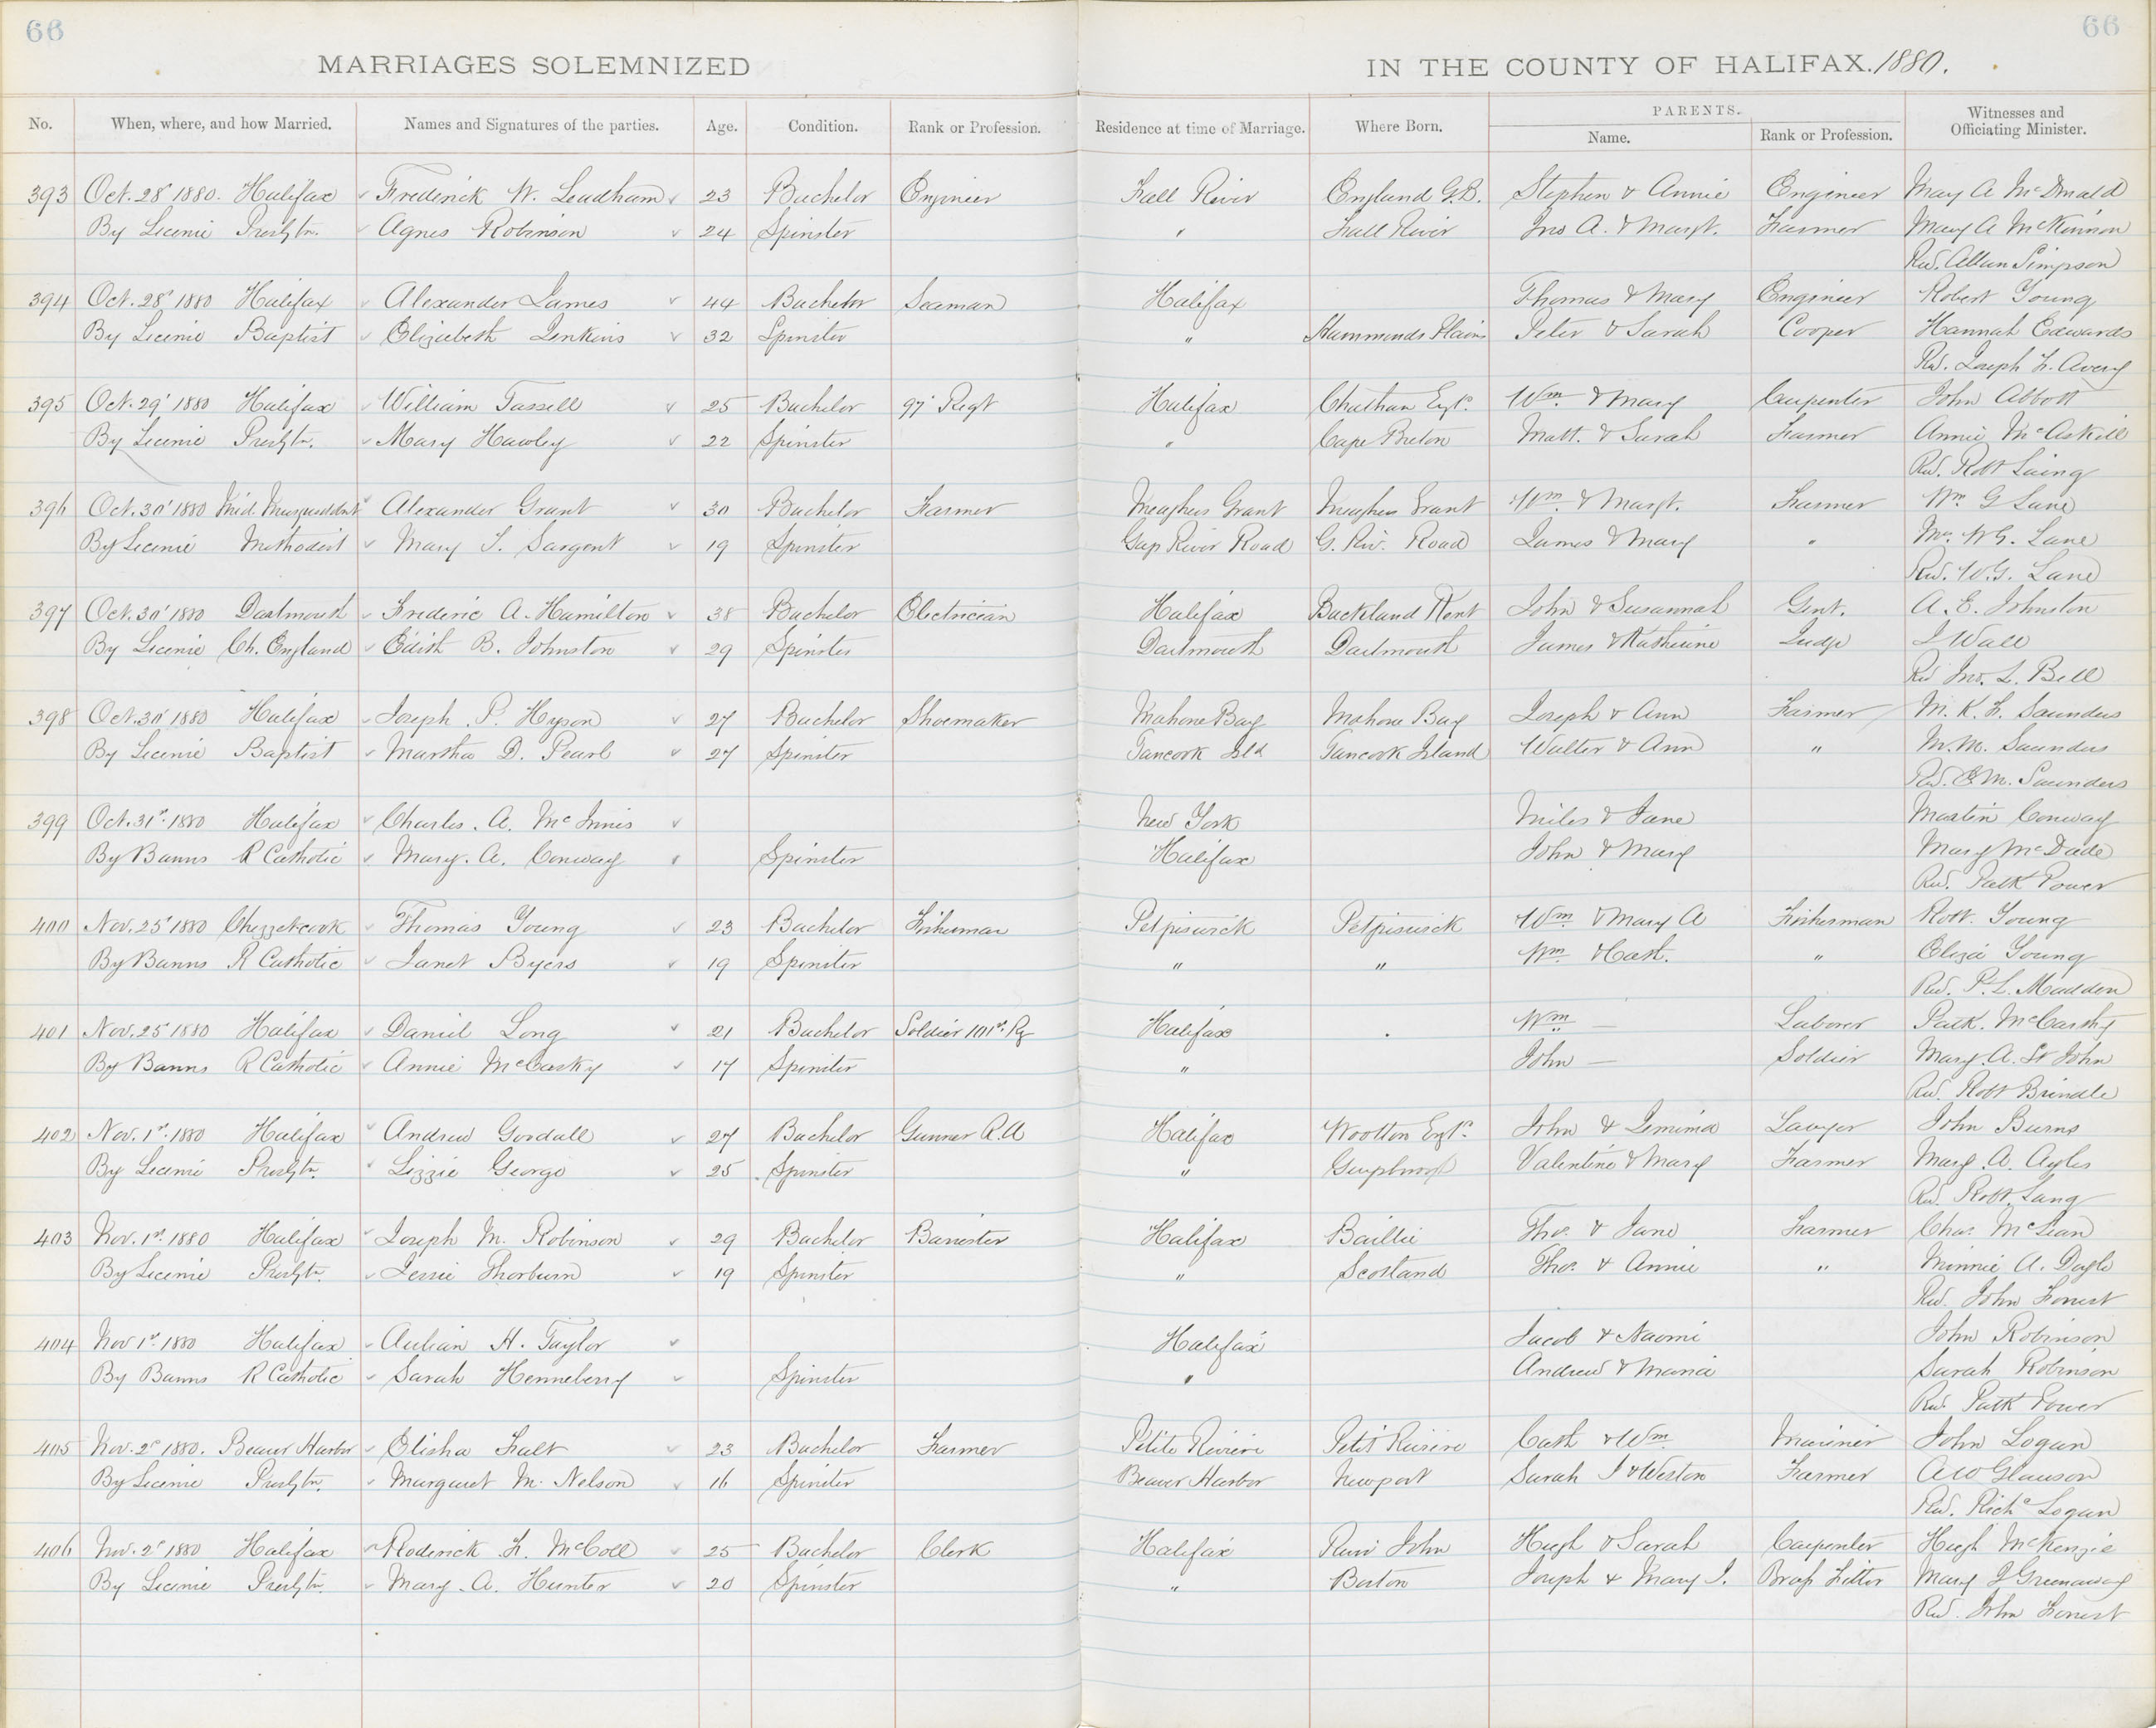 66 66
MARRIAGES SOLEMNIZED IN THE COUNTY OF HALIFAX. 1880.
No. When, where, and how Married. Names and Signatures of the parties. Age. Condition. Rank or Profession. Residence at time of Marriage. Where Born. PARENTS. Name. Rank or Profession. Witnesses and Officiating Minister.
393 Oct. 28' 1880. Halifax Frederick W. Leadham 23 Bachelor Engineer Fall River England G.B. Stephen & Annie Engineer Mary A McDonald
By Licence Presbytn. Agnes Robinson 24 Spinster " Fall River Jno A. & Margt. Farmer Mary A McKinnon
Rev. Allan Simpson
394 Oct. 28' 1880 Halifax Alexander James 44 Bachelor Seaman Halifax Thomas & Mary Engineer Robert Young
By Licence Baptist Elizabeth Jenkins 32 Spinster " Hammonds Plains Peter & Sarah Cooper Hannah Edwards
Rev. Joseph F. Avery
395 Oct. 29' 1880 Halifax William Tassell 25 Bachelor 97' Regt Halifax Chatham Engd. Wm & Mary Carpenter John Abbott
By Licence Presbytn. Mary Hawley 22 Spinster " Cape Breton Matt. & Sarah Farmer Annie McAskill
Rev. Robt Laing
396 Oct. 30' 1880 Mid. Musquodobt Alexander Grant 30 Bachelor Farmer Meaghers Grant Meaghers Grant Wm & Margt. Farmer Wm G Lane
By Licence Methodist Mary S. Sargent 19 Spinster Gap River Road G. Riv. Road James & Mary " Mrs W G. Lane
Rev. W. G. Lane
397 Oct. 30' 1880 Dartmouth Frederic A. Hamilton 38 Bachelor Electrician Halifax Buckland Kent John & Susannah Gent. A. E. Johnston
By Licence Ch. England Edith B. Johnston 29 Spinster Dartmouth Dartmouth James & Katherine Judge J Wall
Rev Jno. L. Bell
398 Oct. 30' 1880 Halifax Joseph P. Hyson 27 Bachelor Shoemaker Mahone Bay Mahone Bay Joseph & Ann Farmer M. K. F. Saunders
By Licence Baptist Martha D. Pearl 27 Spinster Tancook Isld Tancook Island Walter & Ann " M. M. Saunders
Rev. E. M. Saunders
399 Oct. 31st 1880 Halifax Charles. A. McInnis New York Miles & Jane Martin Conway
By Banns R Catholic Mary. A. Conway Spinster Halifax John & Mary Mary McDade
Rev. Patk Power
400 Nov. 25' 1880 Chezzetcook Thomas Young 23 Bachelor Fisherman Petpiswick Petpiswick Wm & Mary A Fisherman Robt. Young
By Banns R Catholic Janet Byers 19 Spinster " " Wm & Cath. " Eliza Young
Rev. P. L. Madden
401 Nov. 25' 1880 Halifax Daniel Long 21 Bachelor Soldier 101st Rg Halifax Wm — Laborer Patk. McCarthy
By Banns R Catholic Annie McCarthy 17 Spinster " John — Soldier Mary. A. St John
Rev. Robt Brindle
402 Nov. 1st 1880 Halifax Andrew Gordall 27 Bachelor Gunner R.A Halifax Wootton Engd. John & Jemima Lawyer John Burns
By Licence Presbytn. Lizzie George 25 Spinster " Valentine & Mary Farmer Mary. A. Ayles
Rev. Robt Laing
403 Nov. 1st 1880 Halifax Joseph M. Robinson 29 Bachelor Barrister Halifax Baillie Thos. & Jane Farmer Chas. McLean
By Licence Presbytn Jessie Thorburn 19 Spinster " Scotland Thos. & Annie " Minnie A. Doyle
Rev. John Forrest
404 Nov 1st 1880 Halifax H. Taylor Halifax Jacob & Naomi John Robinson
By Banns R Catholic Sarah Henneberry Spinster " Andrew & Maria Sarah Robinson
Rev. Patk Power
405 Nov. 2d 1880. Beaver Harbor Elisha Falt 23 Bachelor Farmer Petite Riviere Petit Riviere Cath & Wm Mariner John Logan
By Licence Presbytn. Margaret M. Nelson 16 Spinster Beaver Harbor Newport Sarah J & Weston Farmer
Rev. Richd Logan
406 Nov. 2d 1880 Halifax Roderick F. McColl 25 Bachelor Clerk Halifax River John Hugh & Sarah Carpenter Hugh McKenzie
By Licence Presbytn. Mary. A. Hunter 20 Spinster " Boston Joseph & Mary J. Brass Fitter Mary J Greenaway
Rev. John Forrest